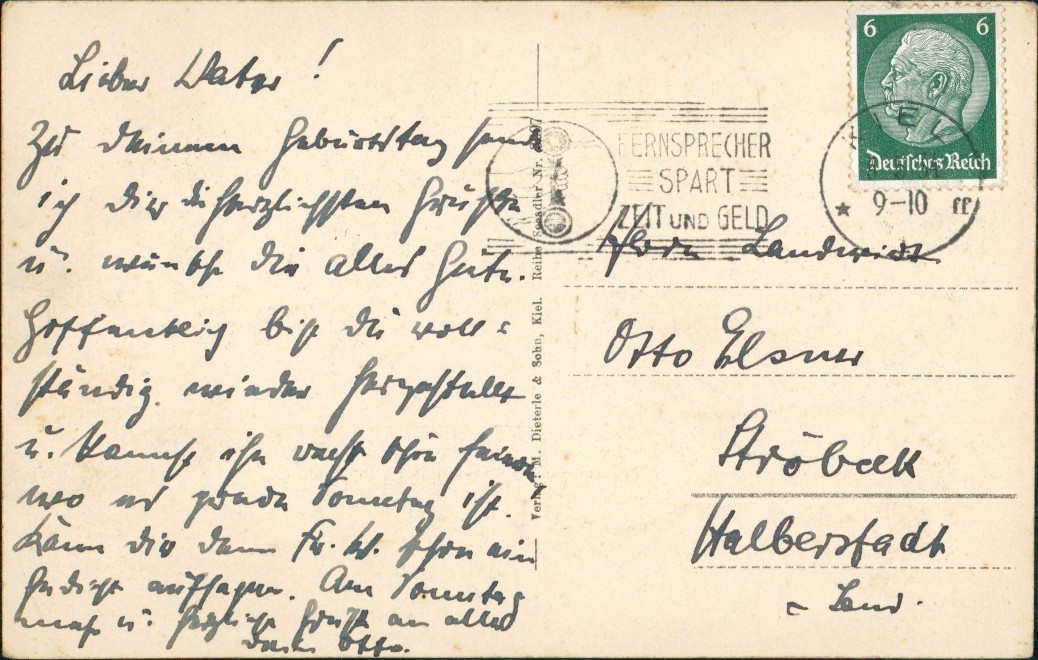 Lieber Vater!
Zu deinem Geburtstag sende
ich dir die herzlichsten Grüße
u. wünsche dir alles Gute.
Hoffentlich bist du voll=
ständig wieder hergestellt
u. kannst ihn recht schön feiern
wo es grade Sonntag ist.
Kann dir denn Fr. W. schon ein
Gedicht aufsagen. Am Sonntag
mehr u. herzliche Grüße an alle
dein Otto.
Verlag: M. Dieterle & Sohn, Kiel. Reihe Seeadler Nr.
6 6
Deutsches Reich
KIEL
9-10
FERNSPRECHER
SPART
ZEIT UND GELD
Herrn Landwirt
Otto Elsner
Ströbeck
Halberstadt
- Land.